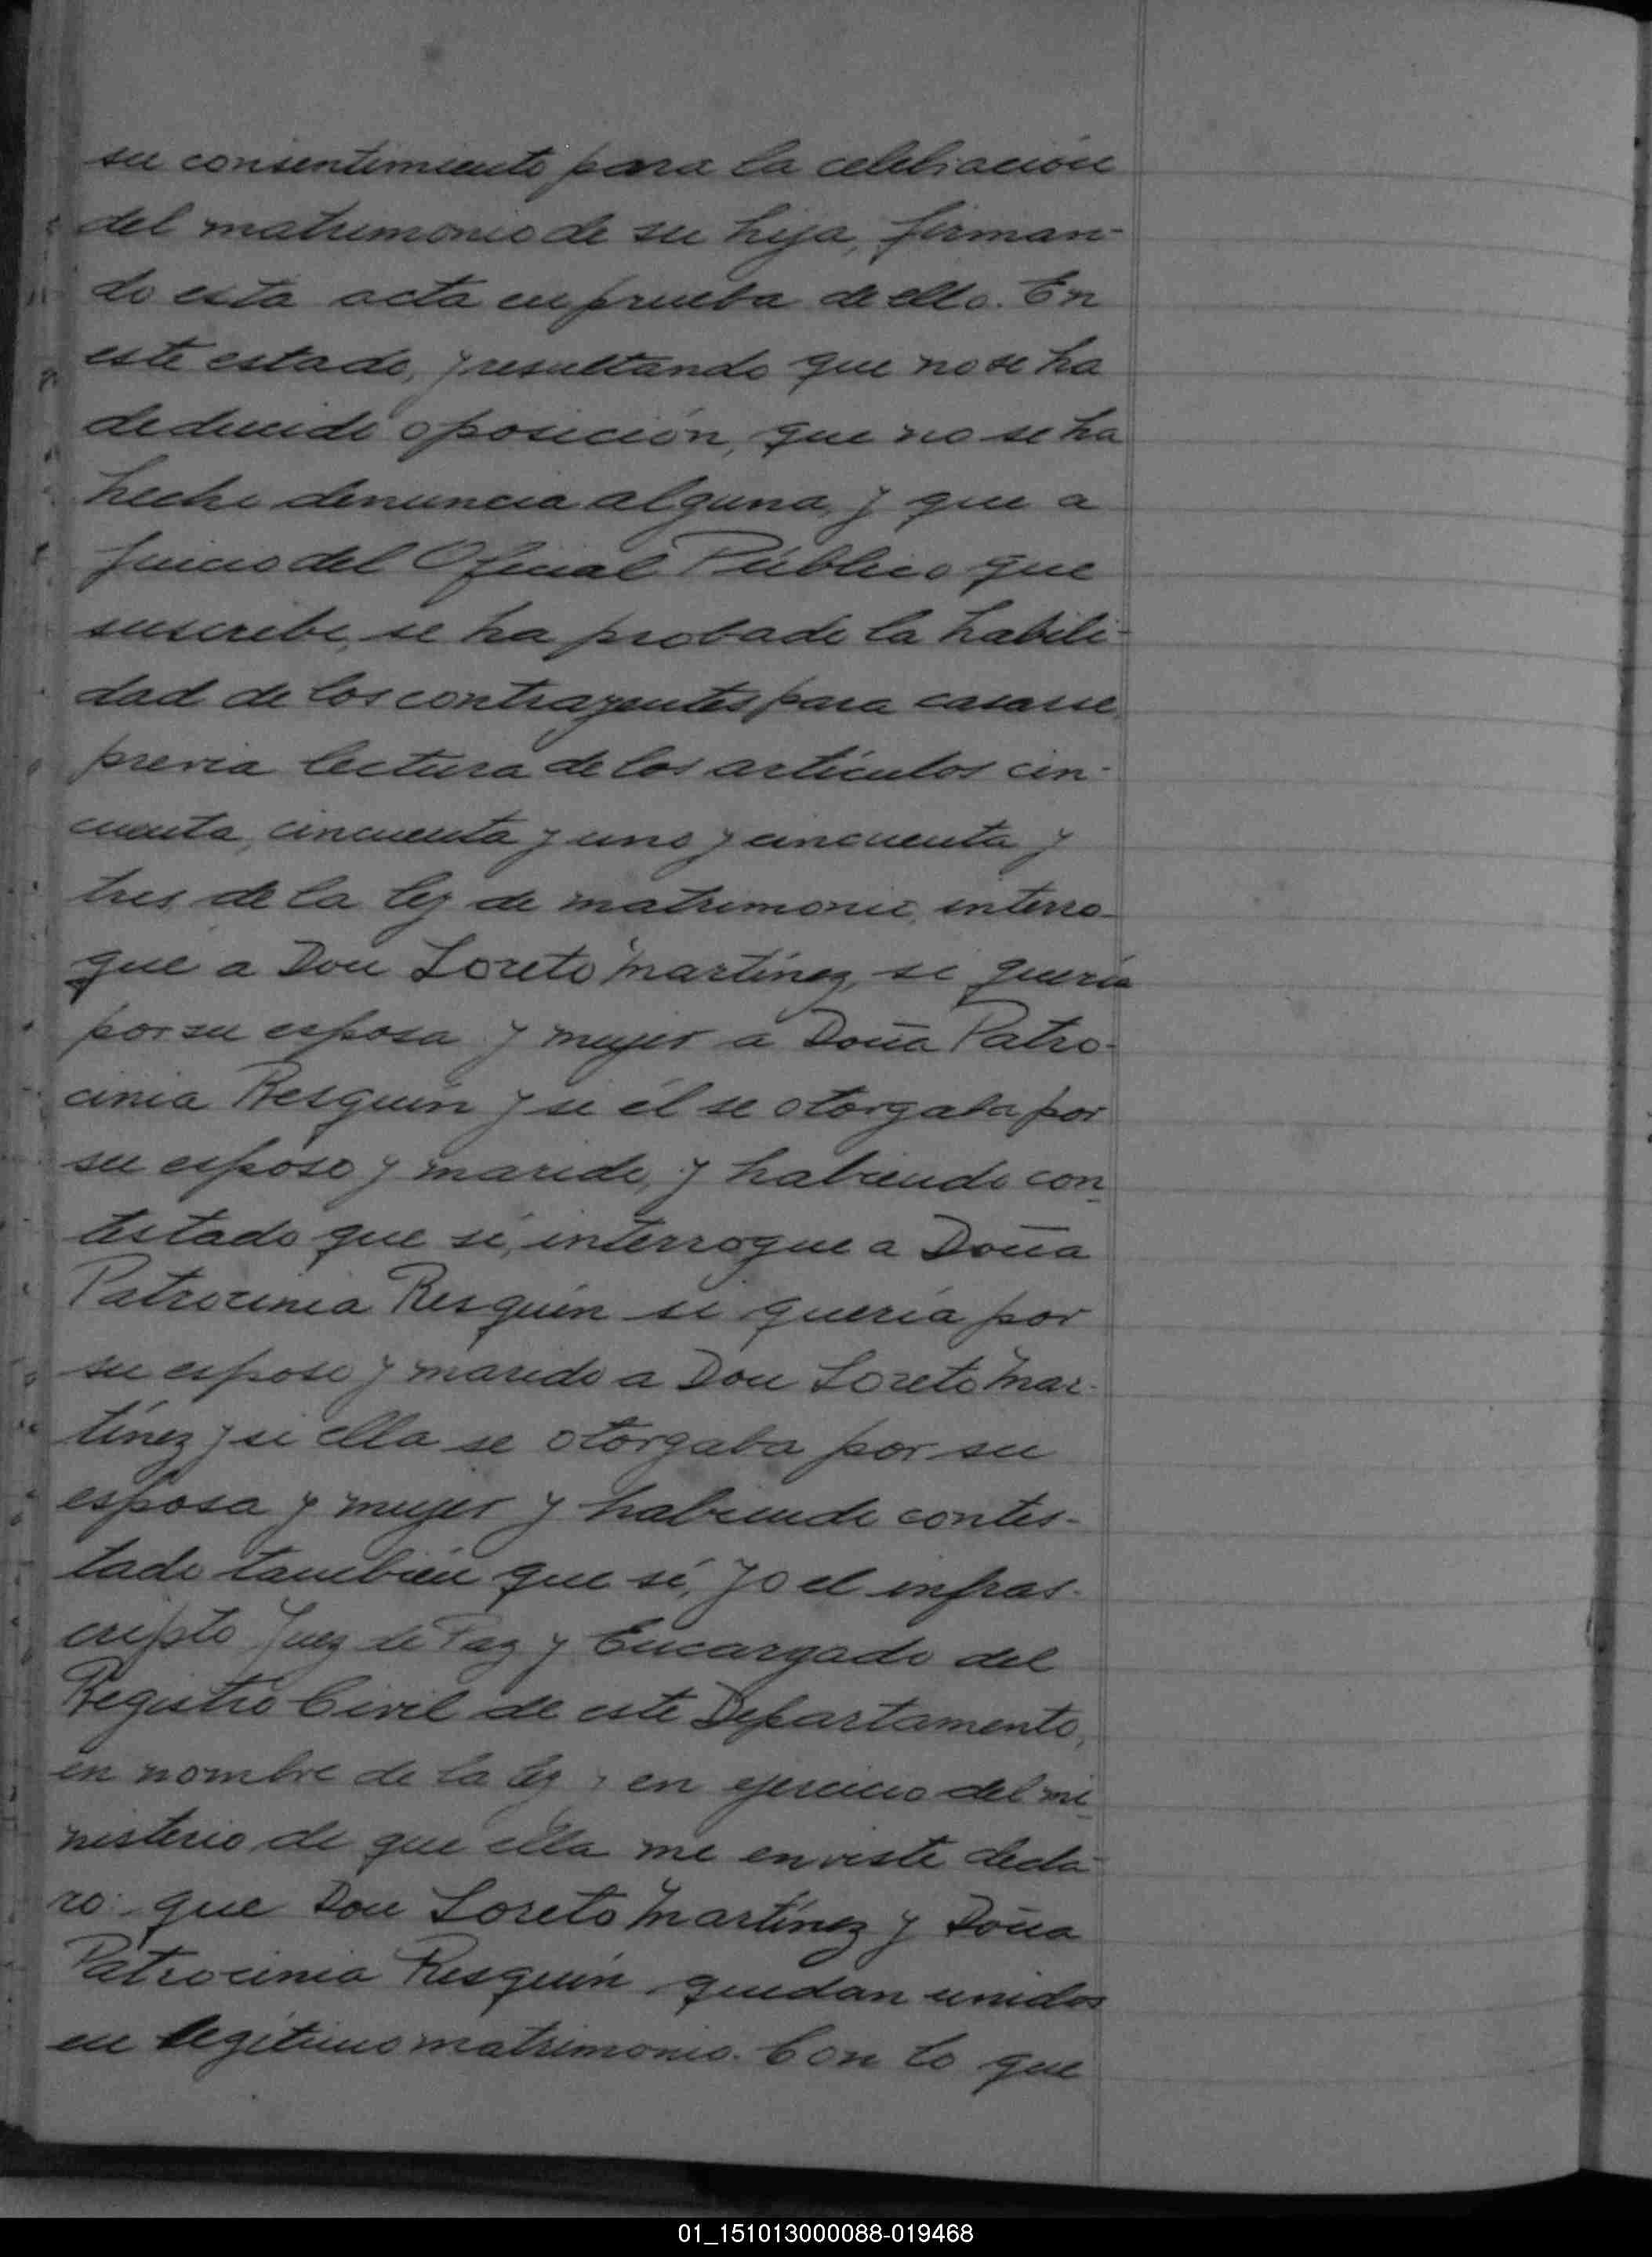 su consentimiento para la celebración
del matrimonio de su hija, firman-
do esta acta en prueba de ello. En
este estado, y resultando que no se ha
deducido oposición, que no se ha
hecho denuncia alguna, y que a
juicio del Oficial Público que
suscribe, se ha probado la habili-
dad de los contrayentes para casarse,
previa lectura de los artículos cin-
cuenta, cincuenta y uno y cincuenta y
tres de la ley de matrimonio, interro-
gué a Don Loreto Martínez, si quería
por su esposa y mujer a Doña Patro-
cinia Resquín y si él se otorgaba por
su esposo y marido, y habiendo con-
testado que sí, interrogue a Doña
Patrocinia Resquín si quería por
su esposo y marido a Don Loreto Mar-
tínez y si ella se otorgaba por su
esposa y mujer y habiendo contes-
tado también que sí, yo el infras-
cripto Juez de Paz y Encargado del
Registro Civil de este Departamento,
en nombre de la ley y en ejercicio del mi-
nisterio de que ella me enviste decla-
ro: que Don Loreto Martínez y Doña
Patrocinia Resquín quedan unidos
en legítimo matrimonio. Con lo que
01_151013000088-019468